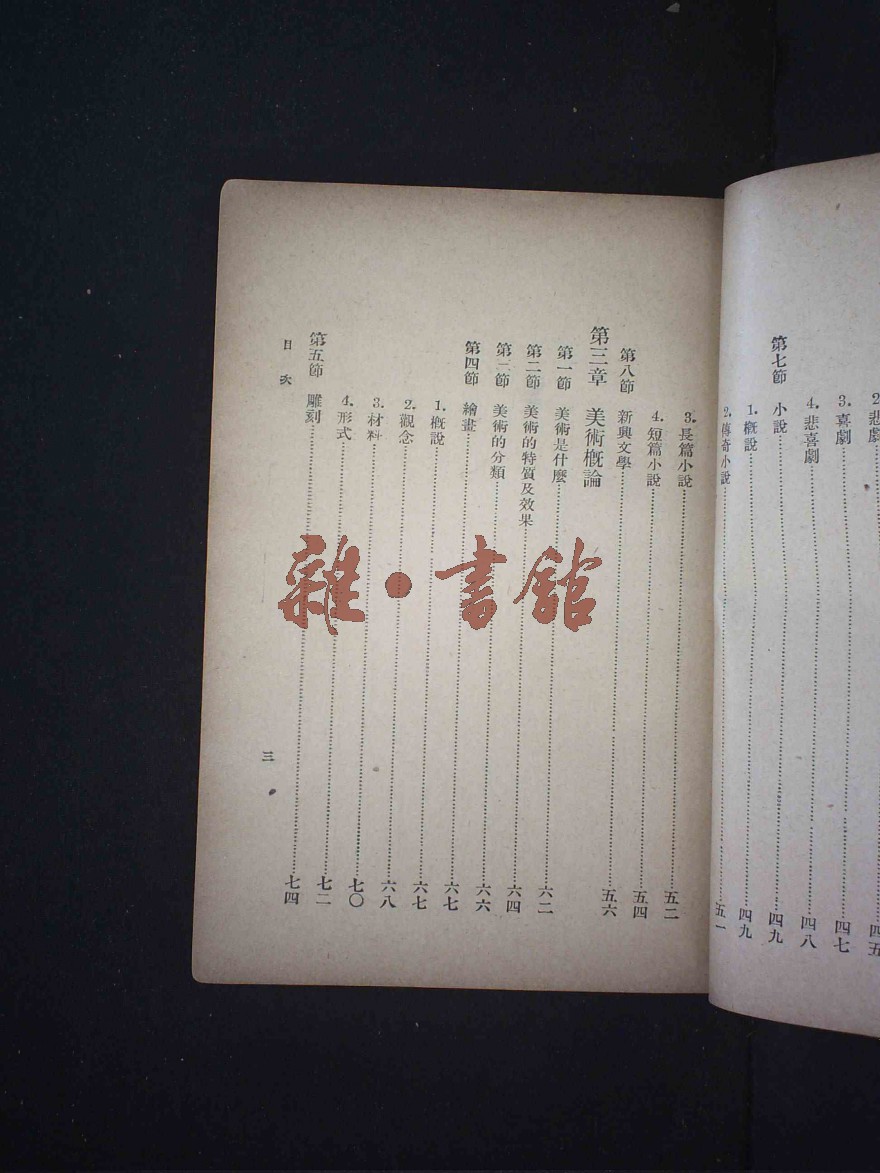 2.悲劇……四五
3.喜劇……四七
4.悲喜劇……四八
第七節 小說……四九
1.概說……四九
2.傳奇小說……五一
3.長篇小說……五二
4.短篇小說……五四
第八節 新興文學……五六
第三章 美術概論
第一節 美術是什麼……六二
第二節 美術的特質及效果……六四
第三節 美術的分類……六六
第四節 繪畫……六七
1.概說……六七
2.觀念……六八
3.材料……七〇
4.形式……七二
第五節 雕刻……七四
目次
三
雜·書館